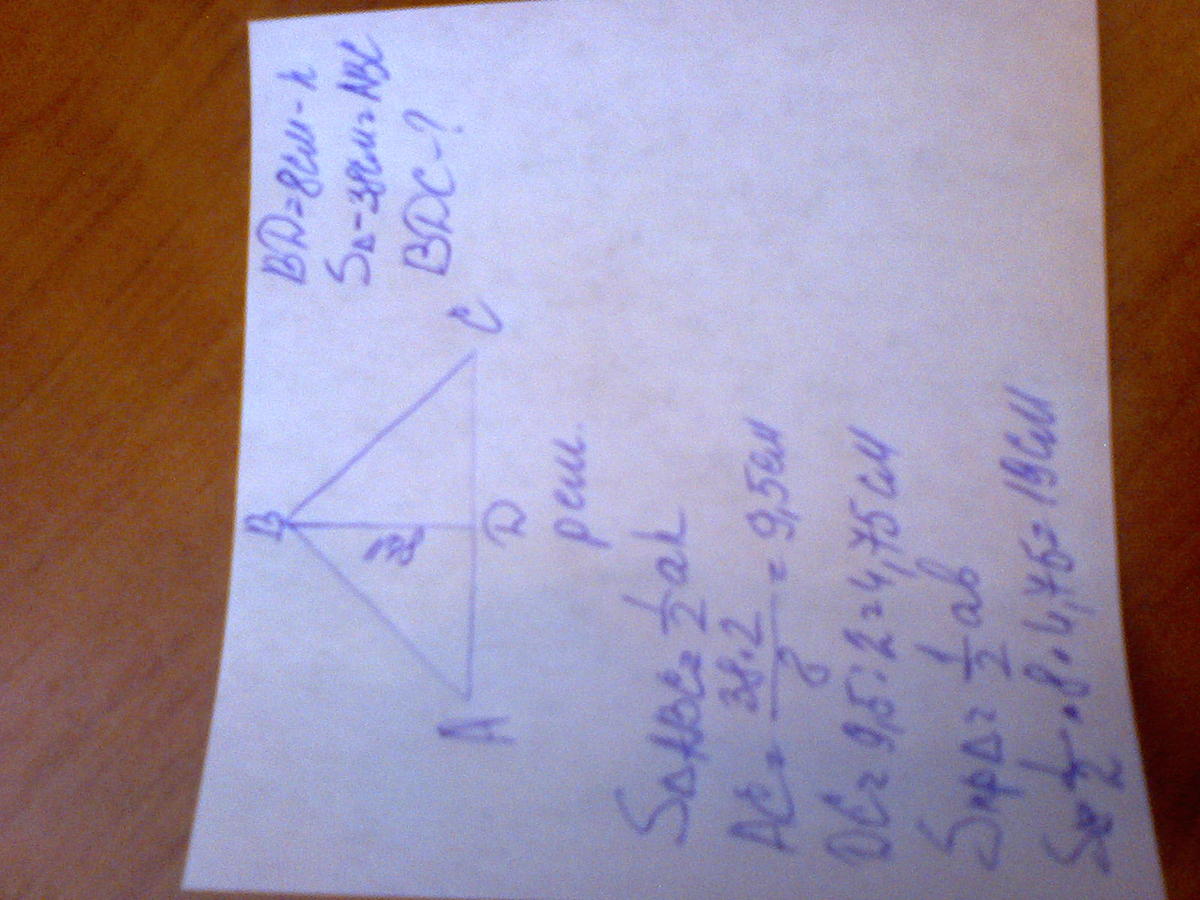 BD=8см-h
S△-38см=ABC
BDC-?
B
A
D
C
реш.
S△ABC=1/2ah
AC=38·2/8=9,5см
DC=9,5:2=4,75см
Sпр△=1/2ab
S=1/2·8·4,75=19см